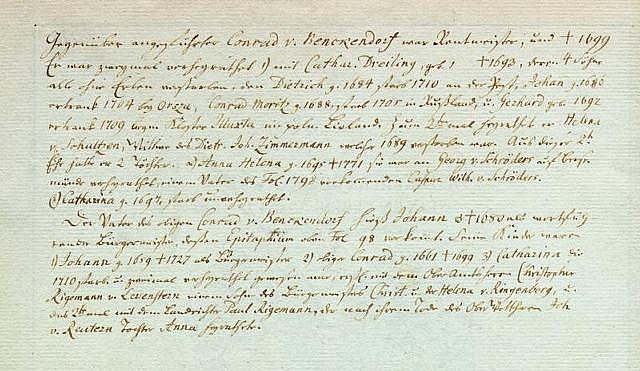 Gegenüber angeführter Conrad v. Benckendorf war Rentmeister, und † 1699
Er war zweymal verheyrathet 1) mit Cathar. Dreiling, geb. 1 † 1693, deren 4 Söhne
alle ohne Erben verstorben, den Dietrich g. 1684 starb 1710 an der Pest, Johan g. 1685
ertrank 1704 bey Conrad Moritz g. 1688, starb 1705 in Rußland, u. Gerhard geb. 1692
ertrank 1709 beym Kloster Illuxta in poln. Livland. Zum 2t mal heyrathet er Helena
v. Schultzen, Wittwe des Joh. Zimmermann welcher 1689 verstorben war. Aus dieser 2t
Ehe hatte er 2 Töchter. a) Anna Helena g. 1695 † 1771 sie war an Georg v. Schröders auf
münde verheyrathet, einem Vater des Fol. 1798 vorkommenden Caspar Wilh. v. Schröders.
b) Catharina g. 1697, starb unverheyrathet.
Der Vater des obigen Conrad v. Benckendorf hieß Johann † 1680 als wortfüh-
render Bürgermeister, dessen Epitaphium oben Fol 98 vorkomt. Seine Kinder waren
1) Johann g. 1659 † 1727 als Bürgermeister 2) obiger Conrad g. 1661 † 1699 3) Catharina die
1710 starb u. zweimal verheyrathet gewesen war, erstl. mit dem Ober Amtsherrn Christopher
Rigemann v. Löwenstern einem Sohn des Bürgermeisters Christ. u. der Helena v. Ringenberg, u.
das 2t mal mit dem Landrichter Paul Rigemann, der nach ihrem Tode des Joh
v. Reutern Tochter Anna heyrathete.